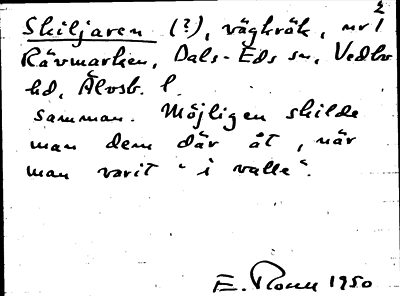 Skiljaren (?), vägkrök, nr 1/2
Rävmarken, Dals-Eds sn, Vedbo
hd, Älvsb. l.
samman. Möjligen skilde
man dem där åt, när
man varit "i valle".
E. 1950